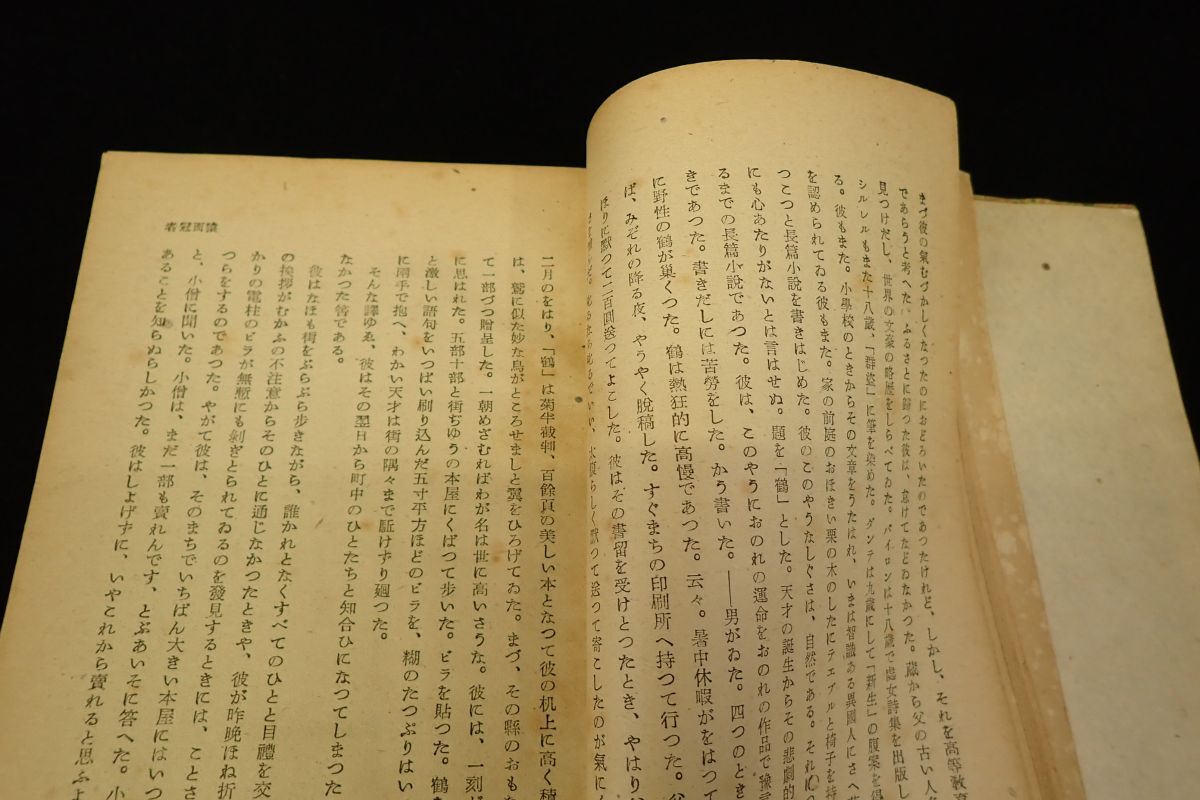 まづ彼の氣むづかしくなつたのにおどろいたのであつたけれど、しかし、それを高等敎育
であらうと考へた。ふるさとに歸つた彼は、怠けてなどゐなかつた。藏から父の古い人名
見つけだし、世界の文豪の略歷をしらべてゐた。バイロンは十八歲で處女詩集を出版し
シルレルもまた十八歲、「群盜」に筆を染めた。ダンテは九歲にして「新生」の腹案を得
る。彼もまた。小學校のときからその文章をうたはれ、いまは智識ある異國人にさへ
を認められてゐる彼もまた。家の前庭のおほきい栗の木のしたにテエブルと椅子を持
つこつと長篇小說を書きはじめた。彼のこのやうなしぐさは、自然である。それに
にも心あたりがないとは言はせぬ。題を「鶴」とした。天才の誕生からその悲劇的
るまでの長篇小說であつた。彼は、このやうにおのれの運命をおのれの作品で豫言
きであつた。書きだしには苦勞をした。かう書いた。――男がゐた。四つのとき
に野性の鶴が巢くつた。鶴は熱狂的に高慢であつた。云々。暑中休暇がをはつて
ば、みぞれの降る夜、やうやく脫稿した。すぐまちの印刷所へ持つて行つた。
ほりに默つて二百圓送つてよこした。彼はその書留を受けとつたとき、やはり
いい、太腹らしく默つて送つて寄こしたのが氣に
猿面冠者
二月のをはり、「鶴」は菊半裁判、百餘頁の美しい本となつて彼の机上に高く積
は、鷲に似た妙な鳥がところせましと翼をひろげてゐた。まづ、その縣のおも
て一部づつ贈呈した。一朝めざむればわが名は世に高いさうな。彼には、一刻が
に思はれた。五部十部と街ぢゆうの本屋にくばつて歩いた。ビラを貼つた。鶴
と激しい語句をいつぱい刷り込んだ五寸平方ほどのビラを、糊のたつぷりはい
に兩手で抱へ、わかい天才は街の隅々まで駈けずり廻つた。
そんな譯ゆゑ、彼はその翌日から町中のひとたちと知合ひになつてしまつた
なかつた筈である。
彼はなほも街をぶらぶら歩きながら、誰かれとなくすべてのひとと目禮を交
の挨拶がむかふの不注意からそのひとに通じなかつたときや、彼が昨晚ほね折
かりの電柱のビラが無慙にも剝ぎとられてゐるのを發見するときには、ことさ
つらをするのであつた。やがて彼は、そのまちでいちばん大きい本屋にはいつ
と、小僧に聞いた。小僧は、まだ一部も賣れんです、とぶあいそに答へた。小
あることを知らぬらしかつた。彼はしよげずに、いやこれから賣れると思ふよ